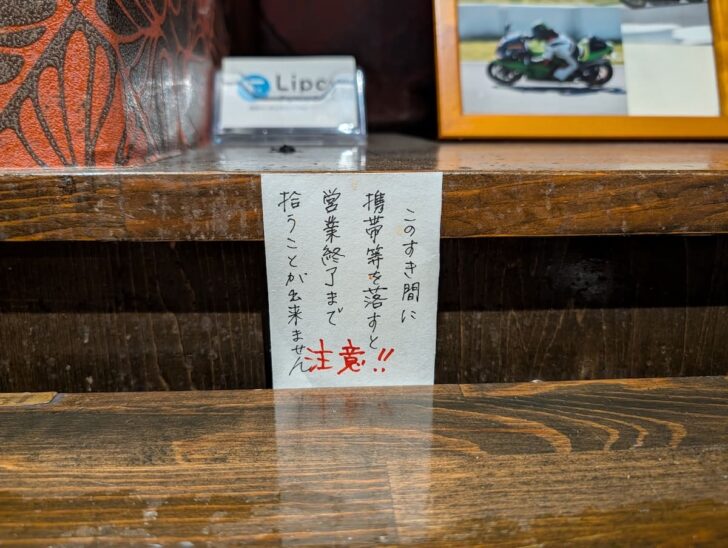 Lipc
このすき間に
携帯等を落すと
営業終了まで
拾うことが出来ません
注意!!